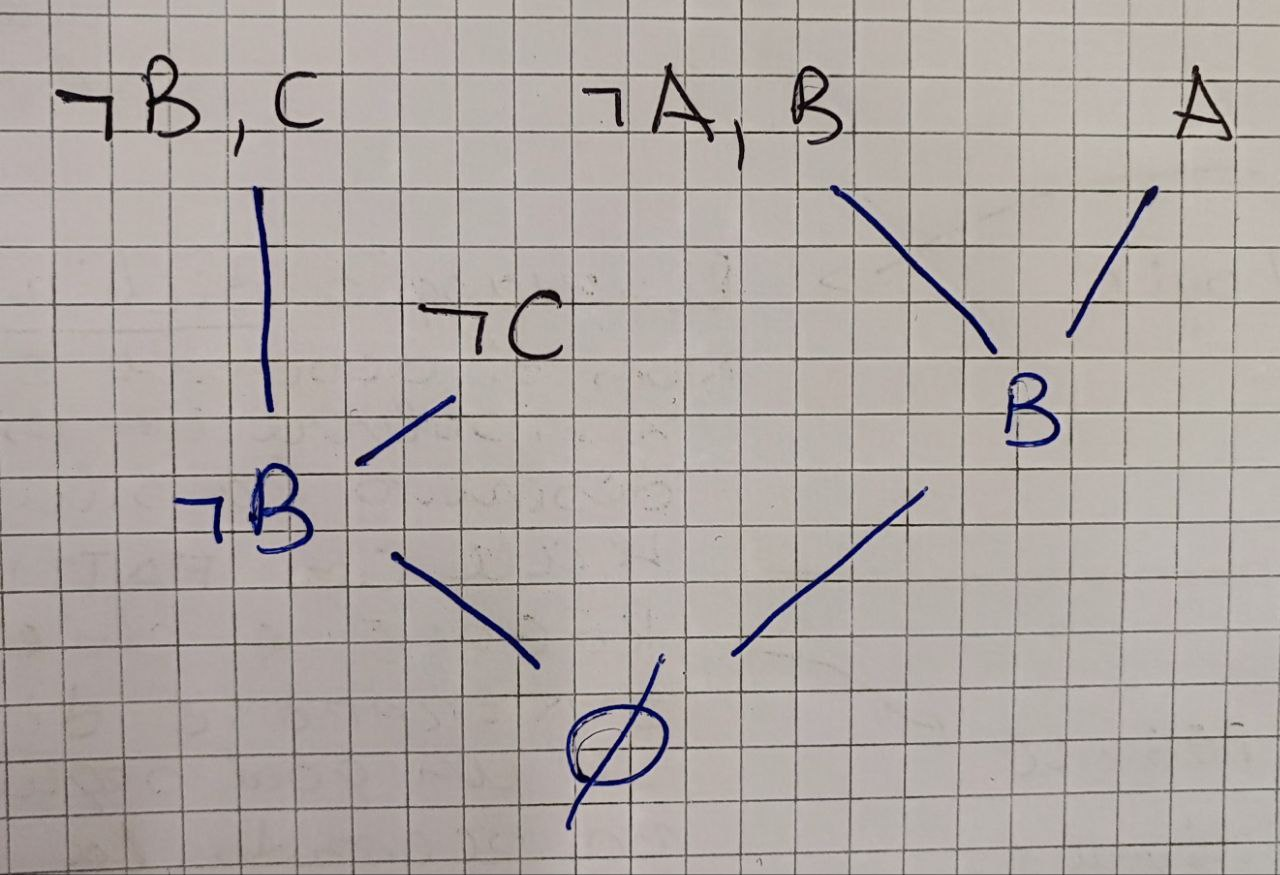 ¬B, C ¬A, B A
¬C
B
¬B
∅